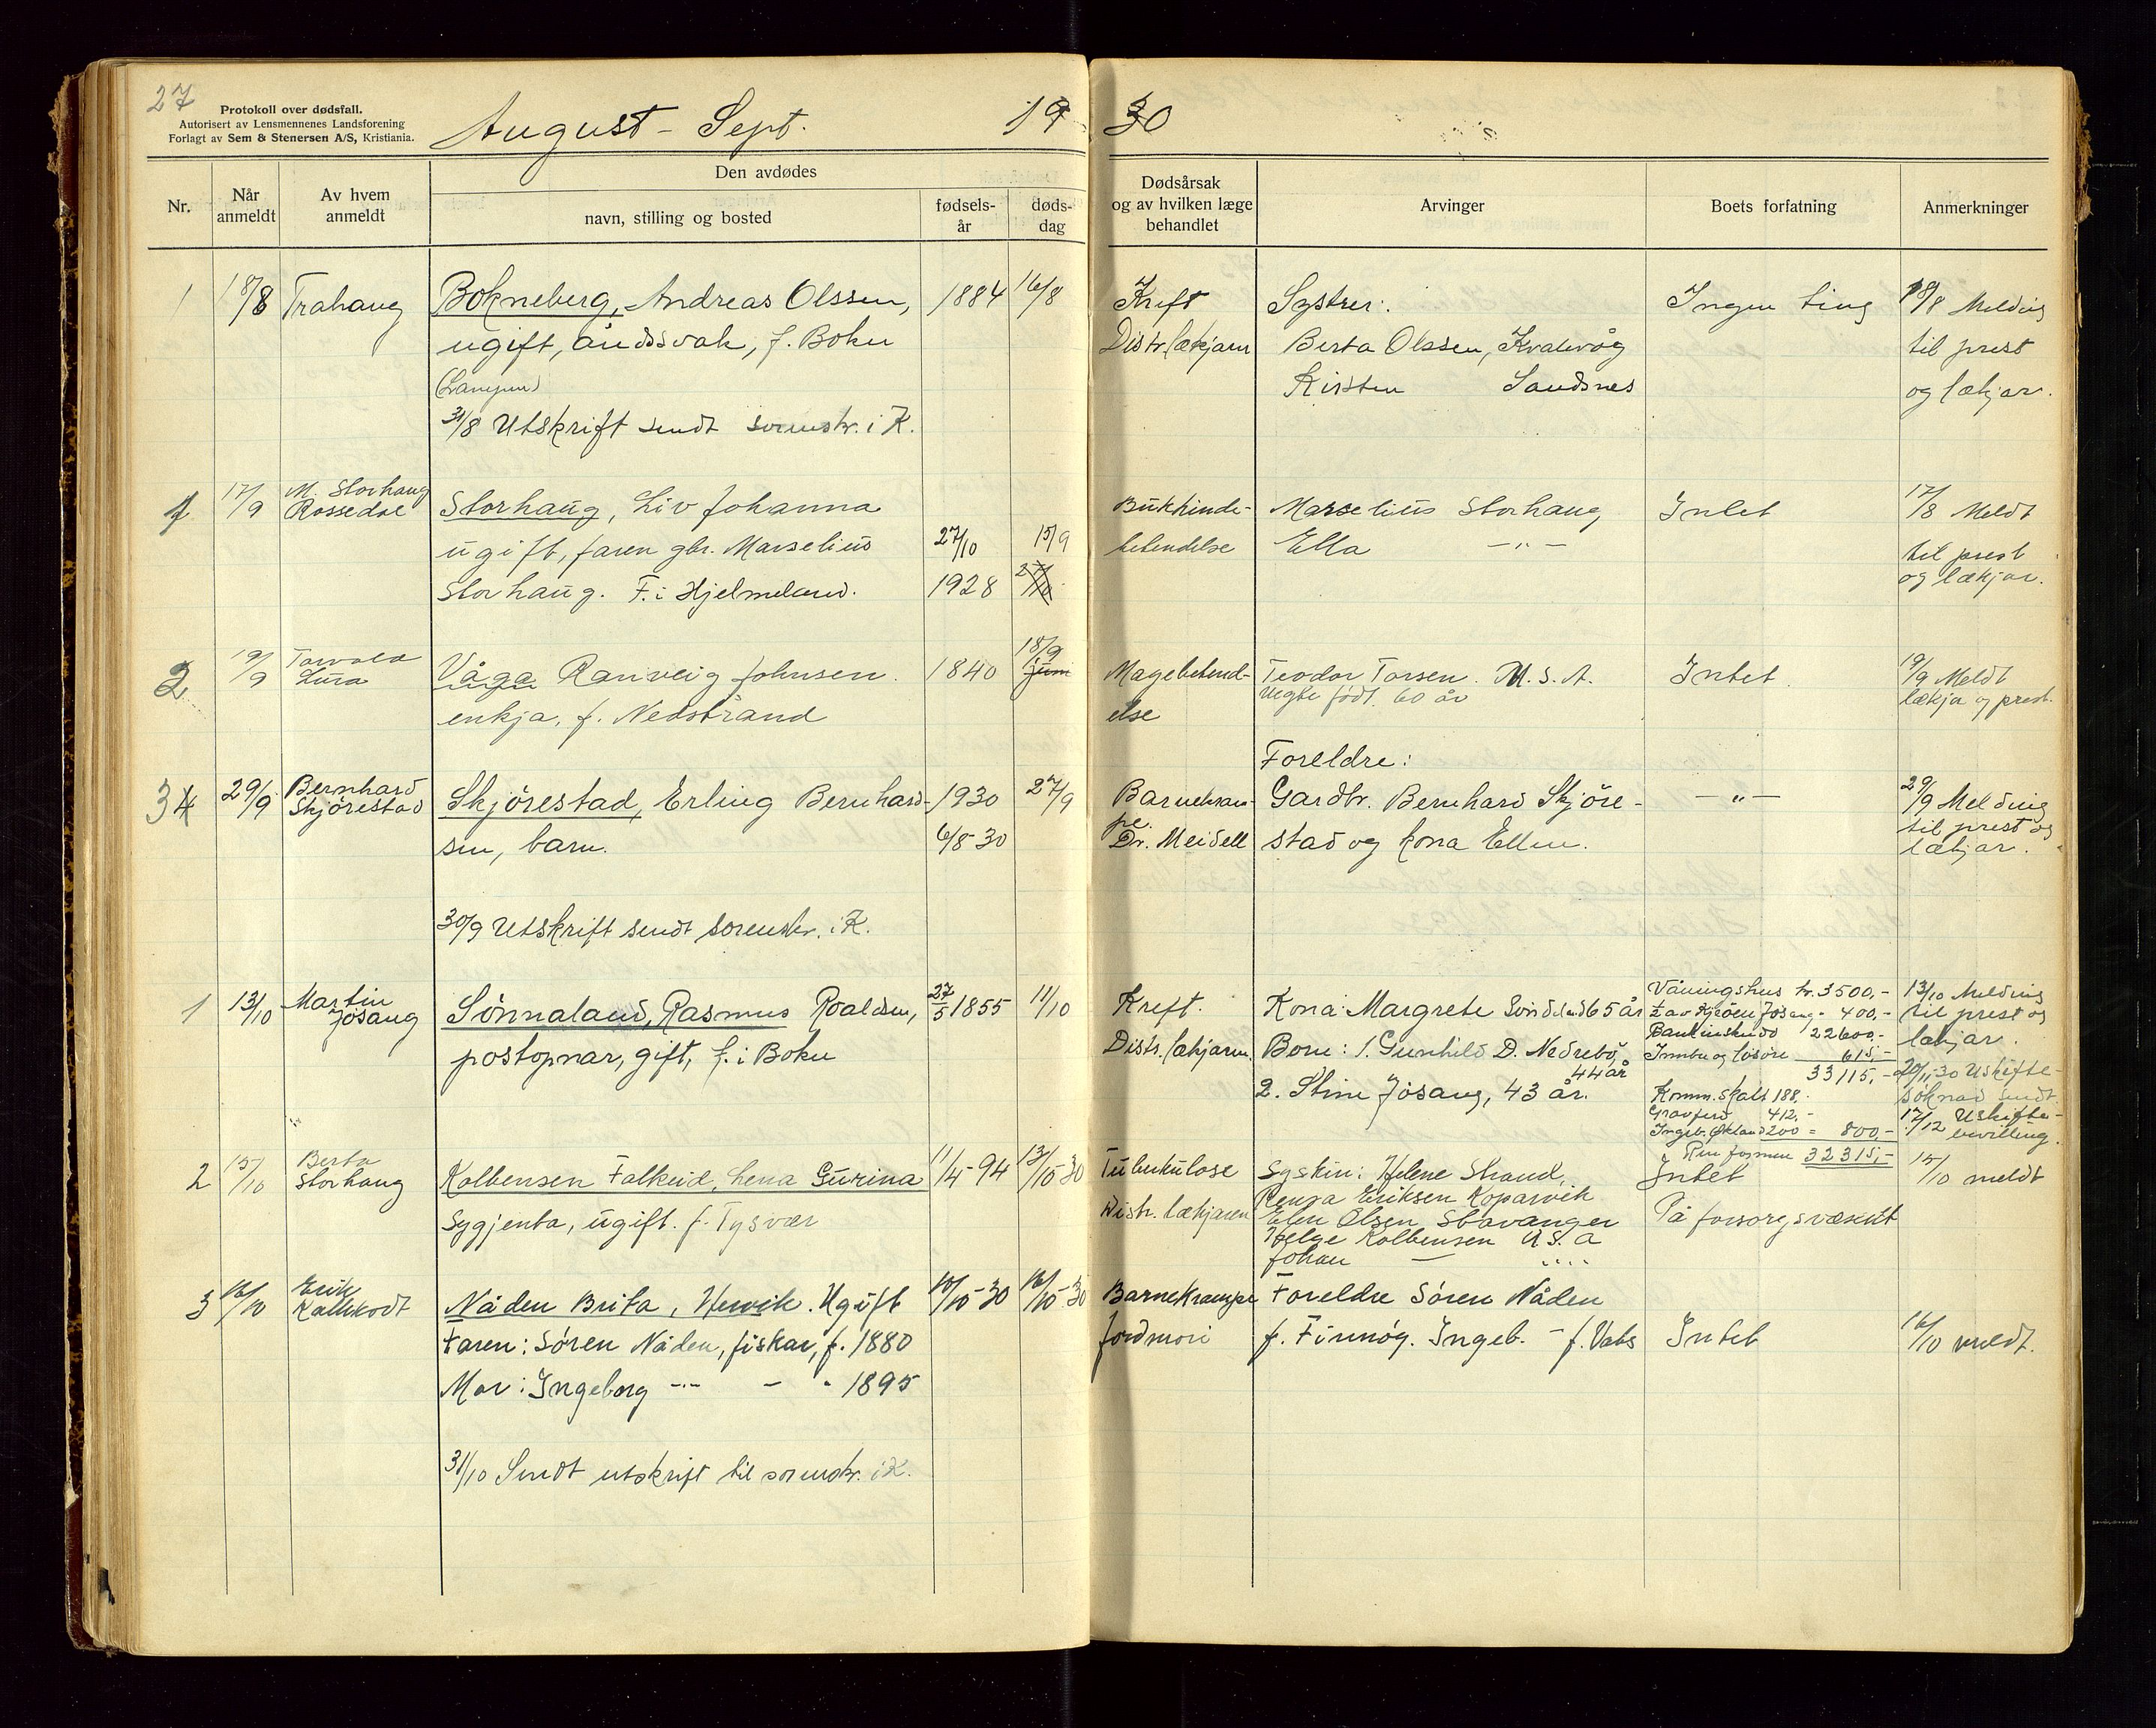 27
Protokoll over dødsfall.
Autorisert av Lensmennenes Landsforening
Forlagt av Sem & Stenersen A/S, Kristiania.
August - Sept. 1930
Nr.
Når anmeldt
Av hvem anmeldt
Den avdødes
navn, stilling og bosted
fødsels-år
døds-dag
Dødsårsak og av hvilken læge behandlet
Arvinger
Boets forfatning
Anmerkninger
1 18/8 Trahaug Bokneberg, Andreas Olssen, 1884 16/8 Kreft Systrer: Ingen ting 18/8 Melding
ugift, åndssvak, f. Bokn Distr.lækjarn Berta Olssen, Kvalevåg til prest
Kirsten Sandsnes og lækjar.
31/8 Utskrift sendt sorenskr. i K.
1 17/9 M. Storhaug Storhaug, Liv Johanna Bukhinde- Marselius Storhaug Intet 17/8 Meldt
Rossedal ugift, faren gbr. Marselius 27/10 15/9 betendelse Ella -"- til prest
Storhaug. F. i Hjelmeland. 1928 og lækjar.
2 19/9 Torvald Våga Ranveig Johnsen. 1840 18/9 Magebetend- Teodor Torsen. U.S.A. Intet 19/9 Meldt
Lura enkja, f. Nedstrand juni else født 60 år lækja og prest.
Foreldre:
34 29/9 Bernhard Skjørestad, Erling Bernhard- 1930 27/9 Barnekram- Gardbr. Bernhard Skjøre- -"- 29/9 Melding
Skjørestad sen, barn. 6/8-30 pe. stad og kona Ellen. til prest og
Dr. Meidell lækjar.
30/9 Utskrift sendt sorenskr. i K.
1 13/10 Martin Sönnaland, Rasmus Roaldsen, 27/5 1855 11/10 Kreft. Kona: Margrete 65 år Våningshus kr. 3500,- 13/10 Melding
Jösang postopnar, gift, f. i Bokn Distr. lækjarn. Born: 1. Gunhild D. Nedrebö, 44 år Jösang - 400,- til prest og
2. Stine Jösang, 43 år. Bankinskudd 22600,- lækjar.
Innbu og lösöre 615,-
33115,- 20/11-30 Uskifte-
Komm.skatt 188.- söknad sendt.
Gravferd 412,- 17/12 Uskifte-
Ingeb. Økland 200 = 800,- bevilling.
Rein formue 32315,-
2 15/10 Berta Kolbensen Falkeid, Lena Gurina 11/4-94 13/10-30 Tuberkulose Syskin: Helene Strand, Intet 15/10 meldt
Storhaug Sygjenta, ugift. f. Tysvær Distr. lækjaren Eriksen Kopervik På forsorgsvæsent
Elen Olsen Stavanger
Helge Kolbensen U.S.A
Johan - " "
3 16/10 Erik Nåden Brita, Hervik. Ugift 10/10-30 16/10-30 Barnekrampe Foreldre Søren Nåden
Faren: Søren Nåden, fiskar, f. 1880 Jordmori f. Finnøy. Ingeb. - f. Vats Intet 16/10 meldt.
Mor: Ingeborg -"- - " 1895
31/10 Sendt utskrift til sorenskr. i K.